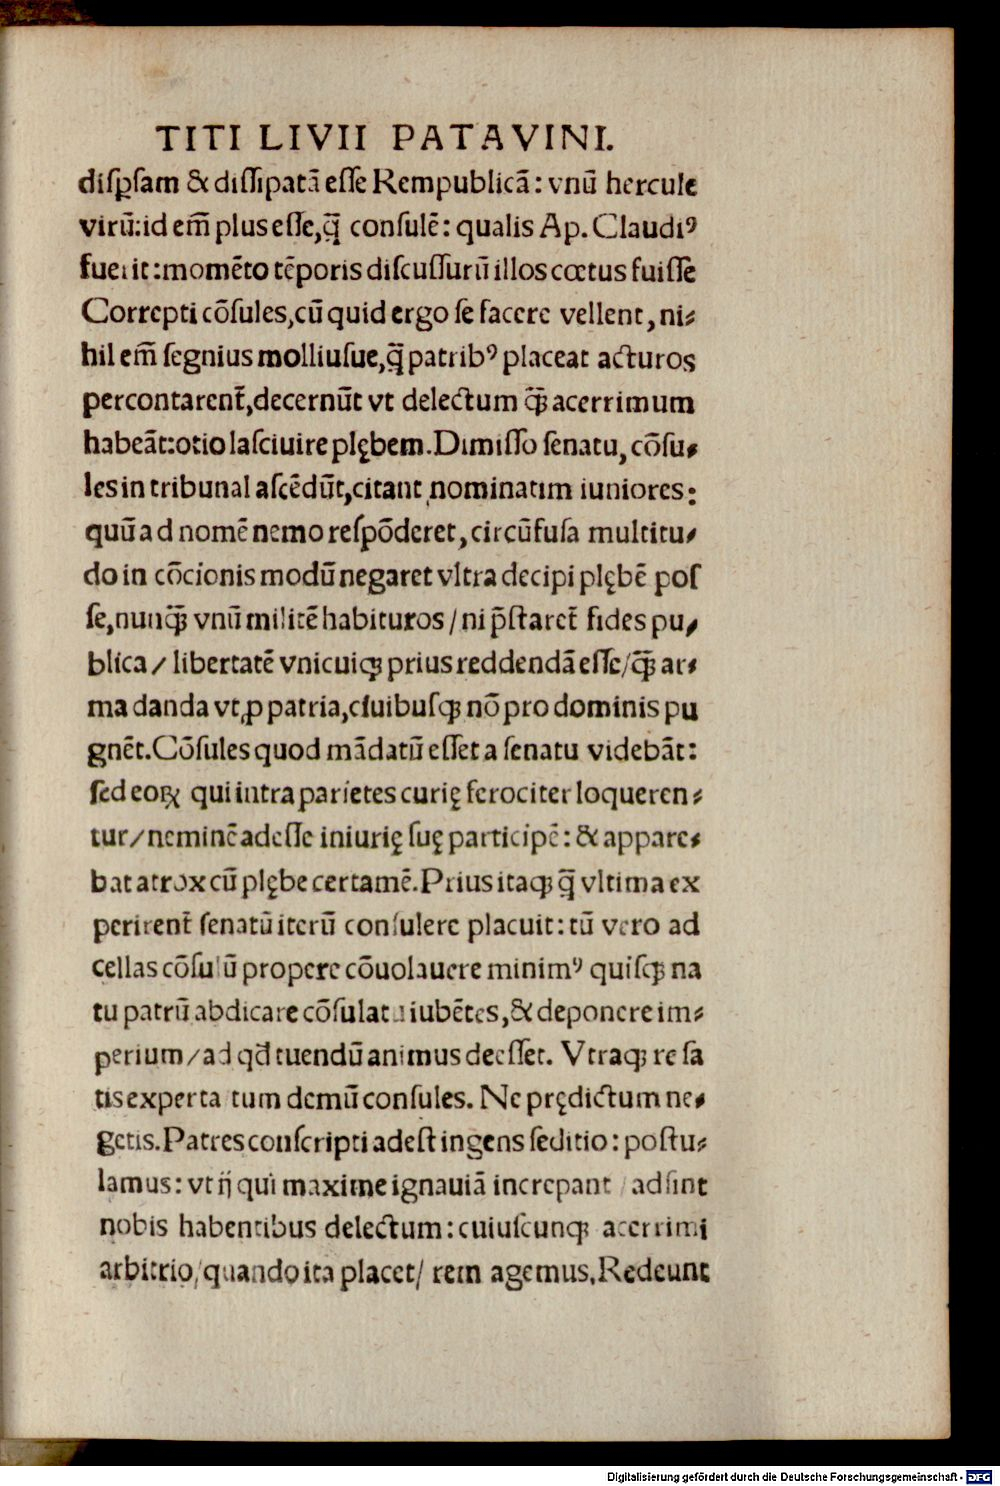 TITI LIVII PATAVINI.
diſꝑſam & diſſipatā eſſe Rempublicā: vnū hercule
virū: id em̄ plus eſſe, q̄ȝ conſulē: qualis Ap. Claudiꝰ
fuerit: momēto tēporis diſcuſſurū illos cœtus fuiſſe
Correpti cōſules, cū quid ergo ſe facere vellent, ni⸗
hil em̄ ſegnius molliuſue, q̄ȝ patribꝰ placeat acturos
percontarent̄, decernūt vt delectum q̄ȝ acerrimum
habeāt: otio laſciuire plębem. Dimiſſo ſenatu, cōſu⸗
les in tribunal aſcēdūt, citant nominatim iuniores:
quū ad nomē nemo reſpōderet, circūfuſa multitu⸗
do in cōcionis modū negaret vltra decipi plębē poſ
ſe, nunq̄ȝ vnū militē habituros / ni p̄ſtaret̄ fides pu⸗
blica / libertatē vnicuiqȝ prius reddendā eſſe / q̄ȝ ar⸗
ma danda vt ꝓ patria, ciuibuſqȝ nō pro dominis pu
gnēt. Cōſules quod mādatū eſſet a ſenatu videbāt:
ſed eoꝝ qui intra parietes curię ferociter loqueren⸗
tur / neminē adeſſe iniurię ſuę participē: & appare⸗
bat atrox cū plębe certamē. Prius itaqȝ q̄ȝ vltima ex
perirent̄ ſenatū iterū conſulere placuit: tū vero ad
cellas cōſulū propere cōuolauere minimꝰ quiſqȝ na
tu patrū abdicare cōſulatu iubētes, & deponere im⸗
perium / ad qd̄ tuendū animus deeſſet. Vtraqȝ re ſa
tis experta tum demū conſules. Ne prędictum ne⸗
getis. Patres conſcripti adeſt ingens ſeditio: poſtu⸗
lamus: vt ij qui maxime ignauiā increpant / adſint
nobis habentibus delectum: cuiuſcunqȝ acerrimi
arbitrio / quando ita placet / rem agemus, Redeunt
Digitalisierung gefördert durch die Deutsche Forschungsgemeinschaft - DFG